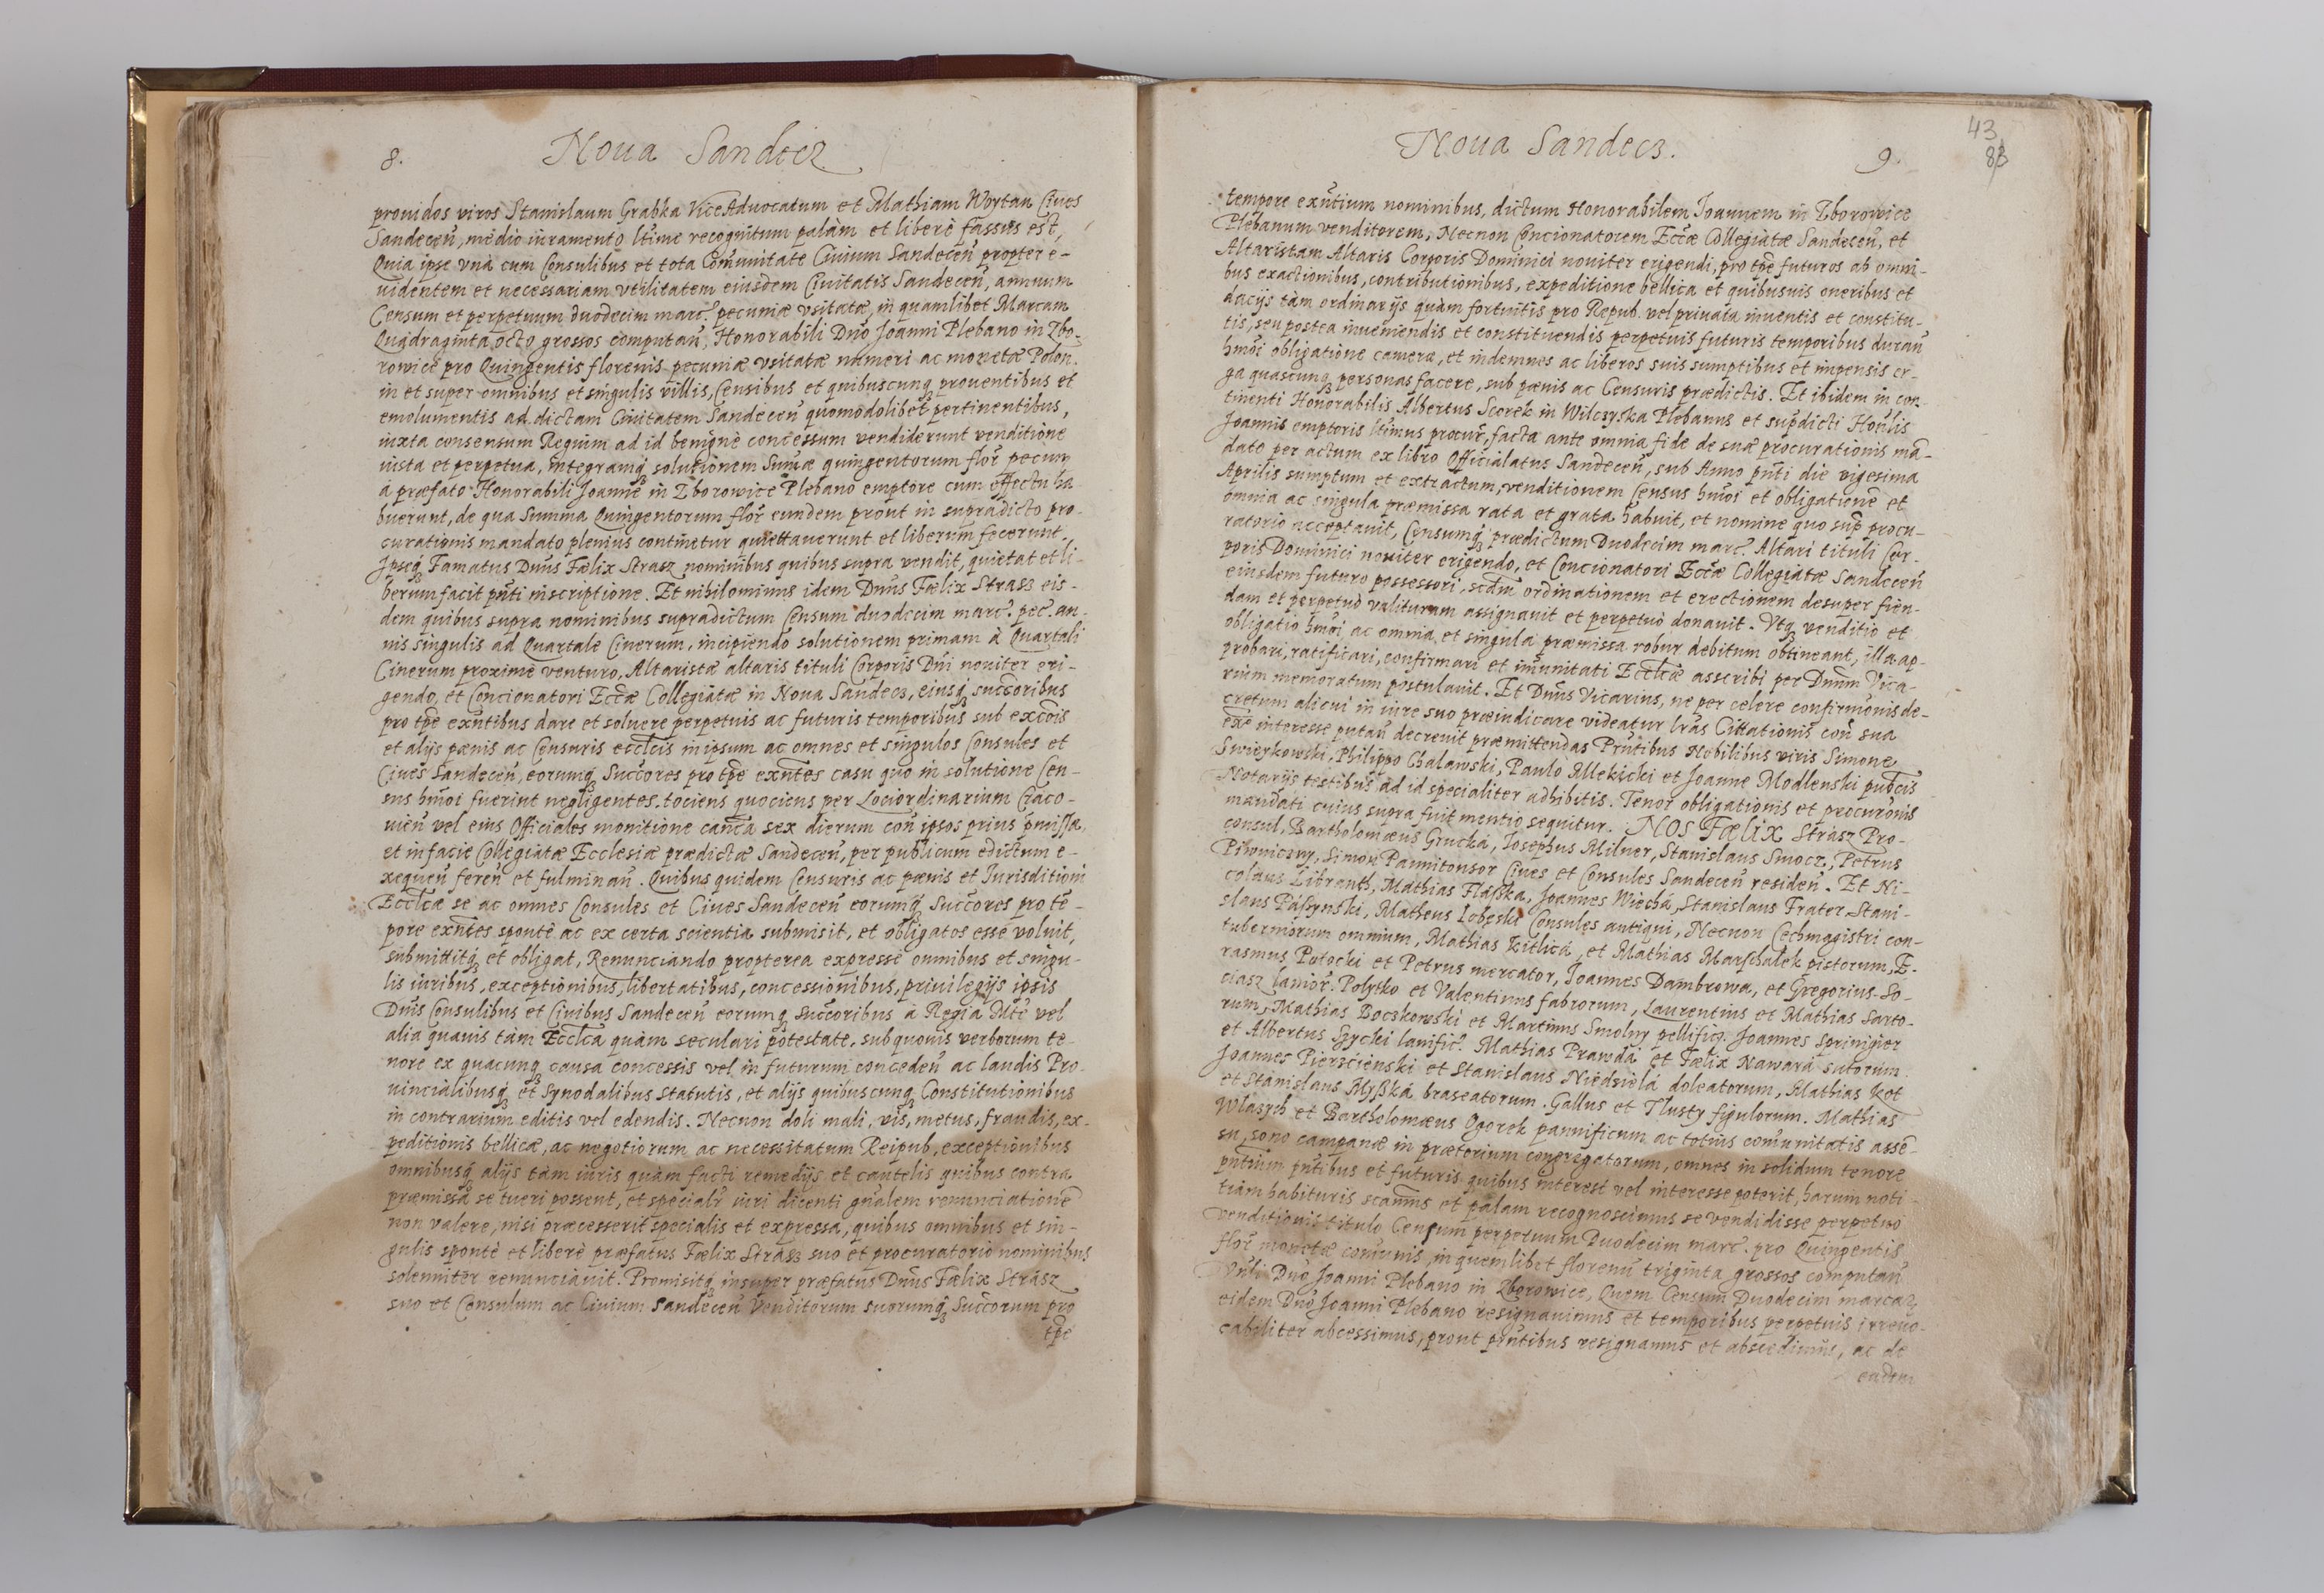 8.
Noua Sandecz
prouidos viros Stanislaum Grabka ViceAduocatum et Mathiam Woytan Ciues
Sandeceñ, medio iuramento ltime recognitum palàm et liberè fassus est,
Quia ipse vnà cum Consulibus et tota Com̃unitate Ciuium Sandeceñ propter e-
uidentem et necessariam vtilitatem eiusdem Ciuitatis Sandeceñ, annuum
Censum et perpetuum duodecim marc. pecuniæ vsitatæ, in quamlibet Marcam
Quadraginta octo grossos computañ, Honorabili Dño Joanni Plebano in Zbo-
rowice pro Quingentis florenis pecuniæ vsitatæ numeri ac monetæ Polon.
in et super omnibus et singulis villis, Censibus et quibuscunq prouentibus et
emolumentis ad dictam Ciuitatem Sandeceñ quomodolibet pertinentibus,
iuxta consensum Regium ad id benignè concessum vendiderunt venditione
iusta et perpetua, integramq solutionem Sum̃æ quingentorum flor pecun
à præfato Honorabili Joanne in Zborowice Plebano emptore cum effectu ha
buerunt, de qua Summa Quingentorum flor eundem prout in supradicto pro-
curationis mandato plenius continetur quiettauerunt et liberum fecerunt.
Ipseq Famatus Dñus Fælix Strasz nominibus quibus supra vendit, quietat et li-
berum facit pñti inscriptione. Et nihilominus idem Dñus Fælix Strasz eis-
dem quibus supra nominibus supradictum Censum duodecim marc. pec. an-
nis singulis ad Quartale Cinerum, incipiendo solutionem primam à Quartali
Cinerum proximè venturo, Altaristæ altaris tituli Corporis Dñi nouiter eri-
gendo, et Concionatori Eccæ Collegiatæ in Noua Sandecz, eiusq succoribus
pro tp̃e exñtibus dare et soluere perpetuis ac futuris temporibus sub excõis
et alijs pœnis ac Censuris ecclcis in ipsum ac omnes et singulos Consules et
Ciues Sandeceñ, eorumq Succores pro tp̃e exñtes casu quo in solutione Cen-
sus hmõi fuerint negligentes. tociens quociens per Lociordinarium Craco-
uieñ vel eius Officiales monitione canca sex dierum coñ ipsos prius pmissa,
et in facie Collegiatæ Ecclesiæ prædictæ Sandeceñ, per publicum edictum e-
xequeñ fereñ et fulminañ. Quibus quidem Censuris ac pœnis et Jurisditioni
Ecclcæ se ac omnes Consules et Ciues Sandeceñ eorumq Succores pro tẽ-
pore exñtes spontè ac ex certa scientia submisit, et obligatos esse voluit,
submittitq et obligat, Renunciando propterea expressè omnibus et singu-
lis iuribus, exceptionibus, libertatibus, concessionibus, priuilegijs ipsis
Dñis Consulibus et Ciuibus Sandeceñ eorumq Succoribus à Regia Mte vel
alia quauis tàm Ecclca quàm seculari potestate, sub quouis verborum te-
nore ex quacunq causa concessis vel in futurum concedeñ ac laudis Pro-
uincialibusq et Synodalibus statutis, et alijs quibuscunq Constitutionibus
in contrarium editis vel edendis. Necnon doli mali, vis, metus, fraudis, ex-
peditionis bellicæ, ac negotiorum ac necessitatum Reipub, exceptionibus
omnibusq alijs tàm iuris quàm facti remedijs et cautelis quibus contra
præmissa se tueri possent, et specialr iuri dicenti gñalem renunciationẽ
non valere, nisi præcesserit specialis et expressa, quibus omnibus et sin-
gulis spontè et liberè præfatus Fælix Strasz suo et procuratorio nominibus
solenniter renunciauit. Promisitq insuper præfatus Dñus Fælix Strasz
suo et Consulum ac Ciuium Sandeceñ Venditorum suorumq Succorum pro
tp̃e
Noua Sandecz.
9.
43
83
tempore exñtium nominibus, dictum Honorabilem Joannem in Zborowice
Plebanum venditorem, Necnon Concionatorem Eccæ Collegiatæ Sandeceñ, et
Altaristam Altaris Corporis Dominici nouiter erigendi, pro tp̃e futuros ab omni-
bus exactionibus, contributionibus, expeditione bellica et quibusuis oneribus et
dacijs tàm ordinarijs quàm fortuitis pro Repub. vel priuata inuentis et constitu-
tis, seu postea inueniendis et constituendis perpetuis futuris temporibus durañ
hmõi obligatione cauere, et indemnes ac liberos suis sumptibus et impensis er-
ga quascunq personas facere, sub pœnis ac Censuris prædictis. Et ibidem in con-
tinenti Honorabilis Albertus Scorek in Wilczyska Plebanus et supdicti Honlis
Joannis emptoris ltimus procur, facta ante omnia fide de suæ procurationis mã-
dato per actum ex libro Officialatus Sandeceñ, sub Anno pñti die vigesima
Aprilis sumptum et extractum, venditionem Census hmõi et obligationẽ et
omnia ac singula præmissa rata et grata habuit, et nomine quo sup procu-
ratorio acceptauit, Censumq prædictum Duodecim marc. Altari tituli Cor-
poris Dominici nouiter erigendo, et Concionatori Eccæ Collegiatæ Sandeceñ
eiusdem futuro possessori, scdm ordinationem et erectionem desuper fien-
dam et perpetuò valituram assignauit et perpetuò donauit. Vtq venditio et
obligatio hmõi ac omnia et singula præmissa robur debitum obtineant, illa ap-
probari, ratificari, confirmari et im̃unitati Ecclcæ asscribi per Dñum Vica-
rium memoratum postulauit. Et Dñus Vicarius, ne per celere confirmõnis de-
cretum alicui in iure suo præiudicare videatur lras Cittationis coñ sua
exe interesse putañ decreuit præmittendas Pñtibus Nobilibus viris Simone
Swieykowski, Philippo Chalawski, Paulo Mlekicki et Joanne Modlenski publcis
Notarijs testibus ad id specialiter adhibitis. Tenor obligationis et procurõnis
mandati cuius supra fuit mentio sequitur. NOS Fælix Strasz Pro-
consul, Bartholomæus Grucka, Josephus Milner, Stanislaus Smocz, Petrus
Piwoniczny, Simon Pannitonsor Ciues et Consules Sandeceñ resideñ. Et Ni-
colaus Libranth, Mathias Flaszka, Joannes Wiecha, Stanislaus Frater, Stani-
slaus Paszynski, Matheus Lobeski Consules antiqui, Necnon Cechmagistri con-
tuberniorum omnium, Mathias Kitlica, et Mathias Marschalek pistorum, E-
rasmus Potocki et Petrus mercator, Joannes Dambrowa, et Gregorius So-
ciasz lanior. Polytko et Valentinus fabrorum, Laurentius et Mathias Sarto-
rum, Mathias Boczkowski et Martinus Smolny pellific. Joannes Sprinigier
et Albertus Szycki lanific. Mathias Prawda et Fælix Nawara sutorum
Joannes Pierscienski et Stanislaus Niedziela doleatorum, Mathias Kot
et Stanislaus Myszka braseatorum. Gallus et Tlusty figulorum. Mathias
Wlazych et Bartholomæus Ogorek pannificum ac totius com̃unitatis assẽ-
su, sono campanæ in prætorium congregatorum, omnes in solidum tenore
pñtium pñtibus et futuris quibus interest vel interesse poterit, harum noti-
tiam habituris scam̃us et palam recognoscimus se vendidisse perpetuo
venditionis titulo Censum perpetuum Duodecim marc. pro Quingentis
flor monetæ com̃unis, in quemlibet florenũ triginta grossos computañ
Dño Joanni Plebano in Zborowice, Quem Censum Duodecim marcaꝝ
eidem Dño Joanni Plebano resignauimus et temporibus perpetuis irreuo-
cabiliter abcessimus, prout pñtibus resignamus et abscedimus, ac de
eadem